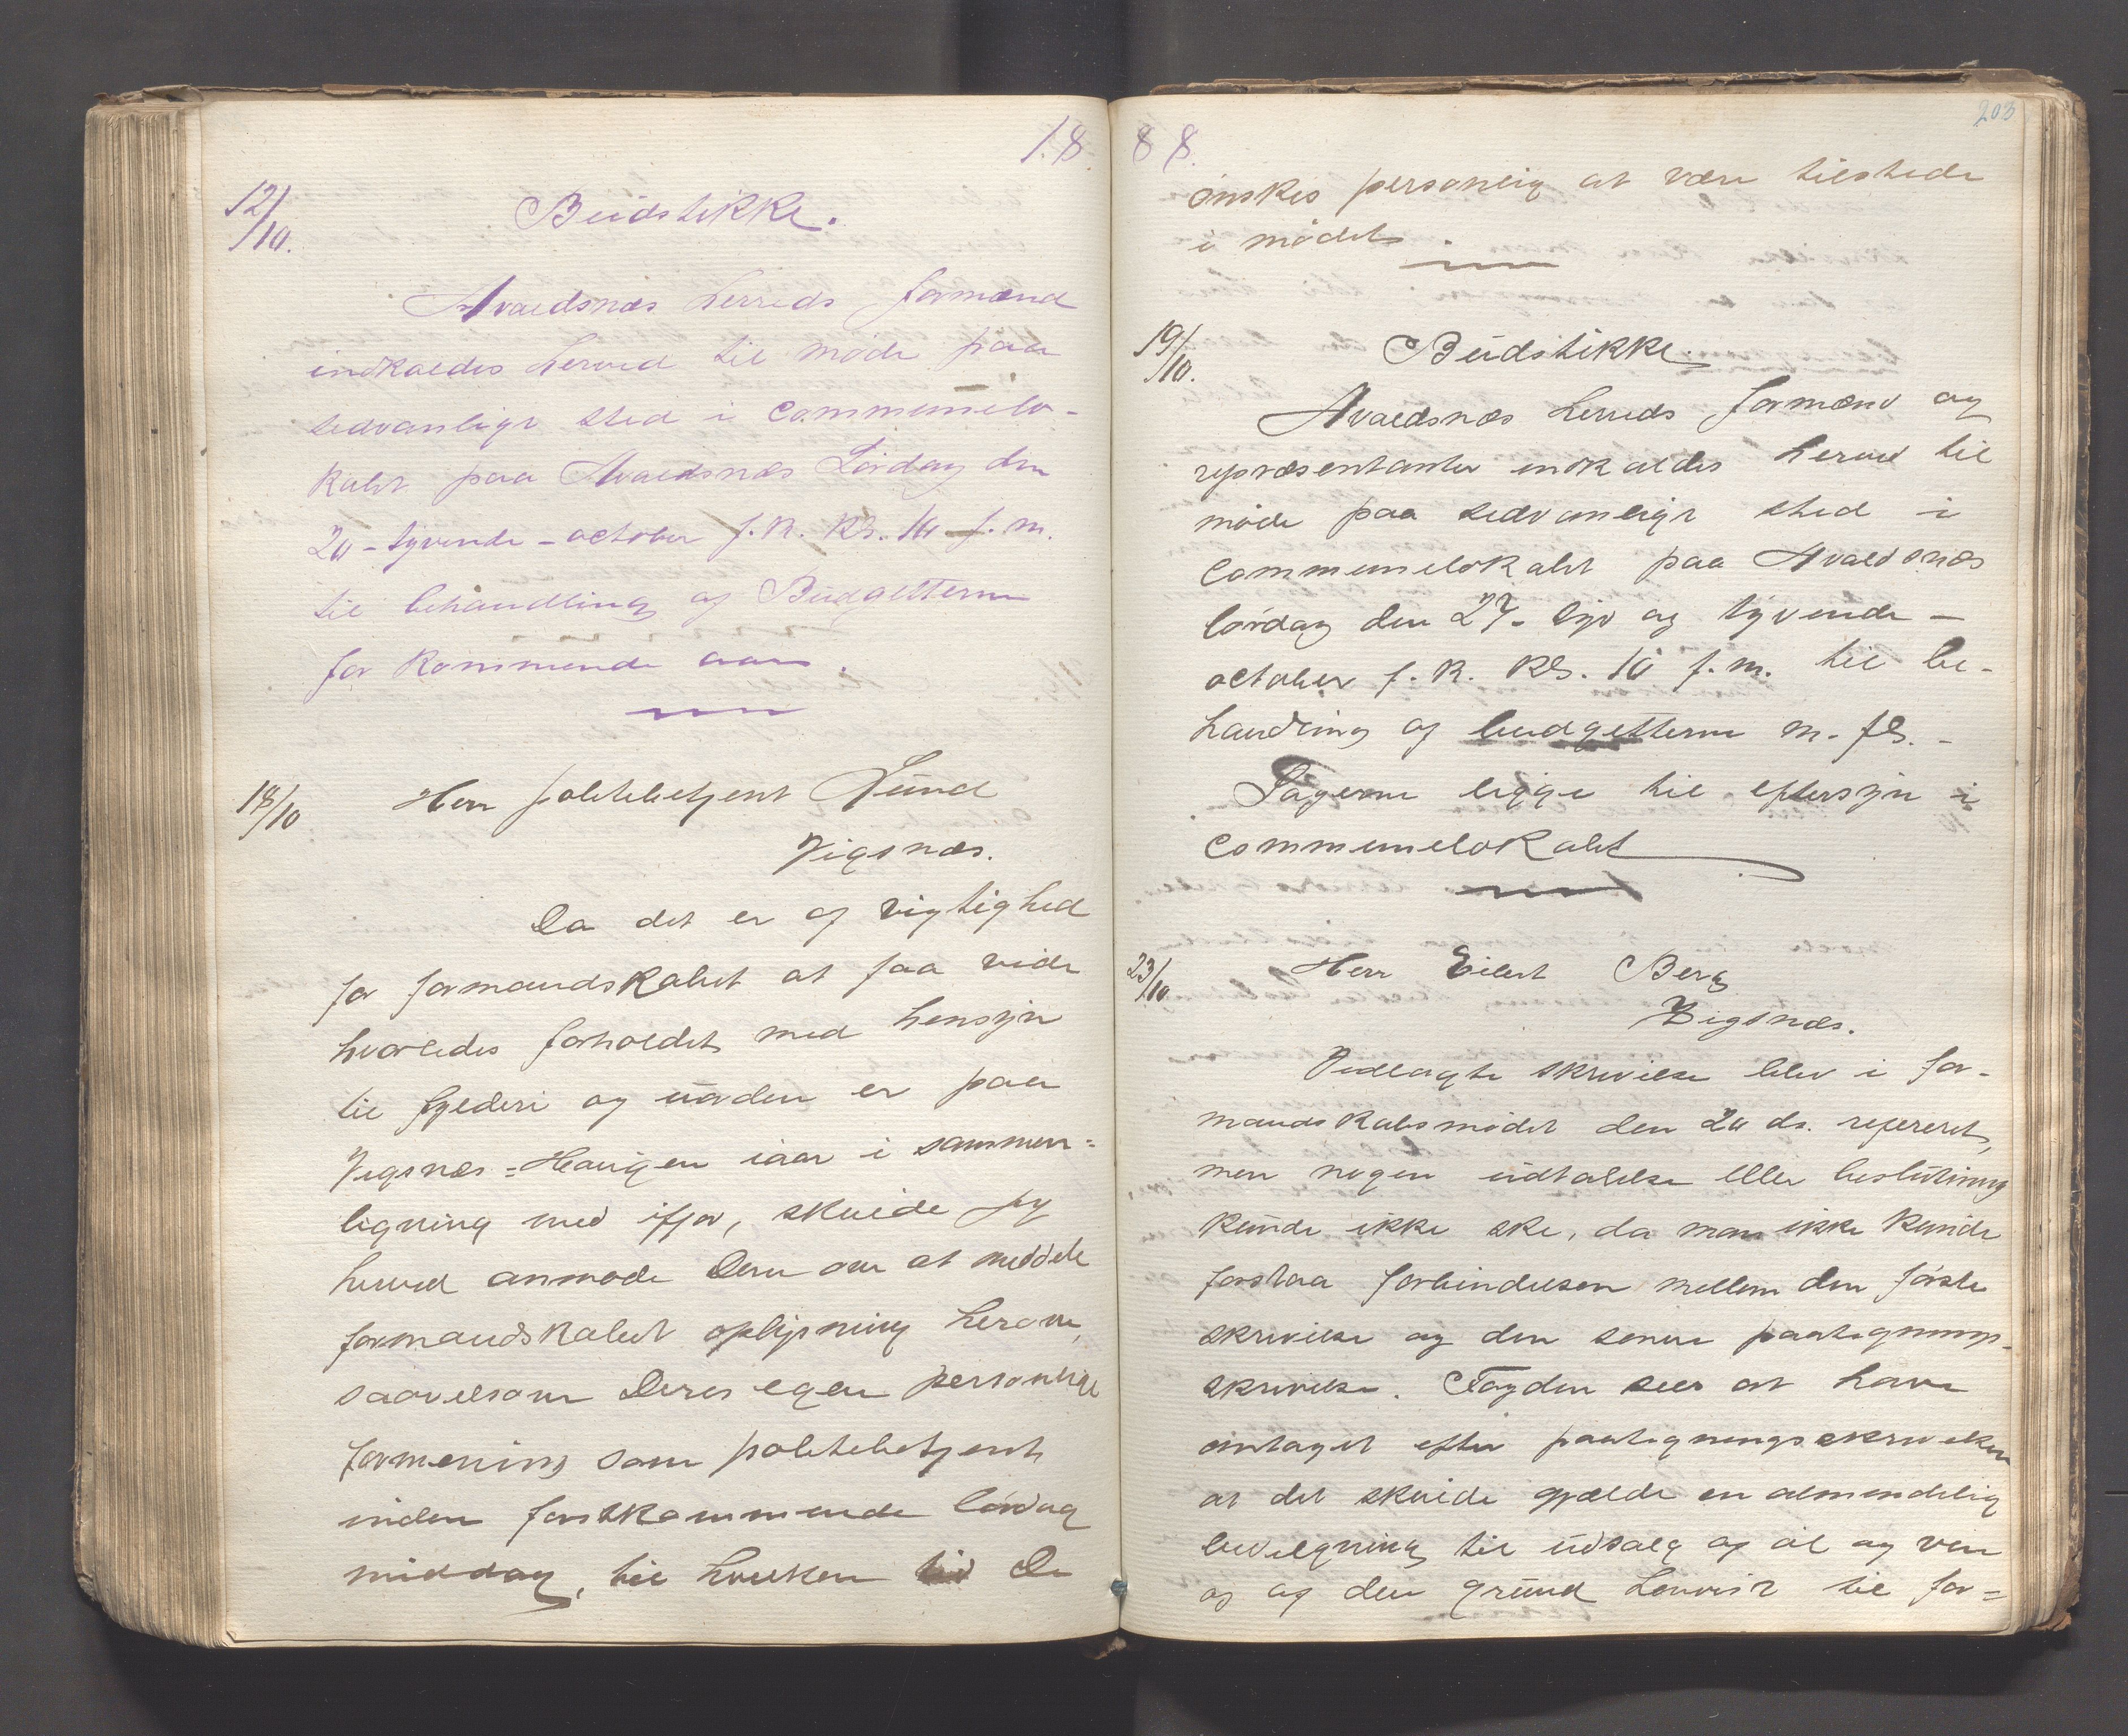 18
12/10.
Budstikke.
Avaldsnæs herreds formænd
indkaldes herved til møde paa
sedvanligt sted i Communelo-
kalet paa Avaldsnæs Lørdag den
20 - tyvende - october f. k. kl. 10 f. m.
til behandling af Budgetterne
for kommende aar.
18/10
Herr politibetjent Lund
Vigsnæs.
Da det er af vigtighed
for formandskabet at faa vide
hvorledes forholdet med hensyn
til fylderi og uorden er paa
Vigsnæs-Haugen iaar i sammen=
ligning med ifjor, skulde jeg
herved anmode Dem om at meddele
formandskabet oplysning herom,
saavelsom Deres egen personlige
formening som politibetjent
inden førstkommende lørdag
middag, til hvilken tid De
203
88.
ønskes personlig at være tilstede
i mødet.
19/10.
Budstikke.
Avaldsnæs herreds formænd og
repræsentanter indkaldes herved til
møde paa sedvanligt sted i
Communelokalet paa Avaldsnæs
lørdag den 27. syv og tyvende -
october f. k. kl. 10 f. m. til be-
handling af budgetterne m. fl. -
Sagerne ligge til eftersyn i
Communelokalet
23/10
Herr Eilert Berg
Vigsnæs.
Vedlagte skrivelse blev i for-
mandskabsmødet den 20 ds. refereret,
men nogen udtalelse eller beslutning
kunde ikke ske, da man ikke kunde
forstaa forbindelsen mellem den første
skrivelse og den senere paategnings-
skrivelse. Fogden sees at have
antaget efter paategningsskrivelsen
at det skulde gjælde en almindelig
bevilgning til udsalg af øl og vin
og af den grund henvist til for=